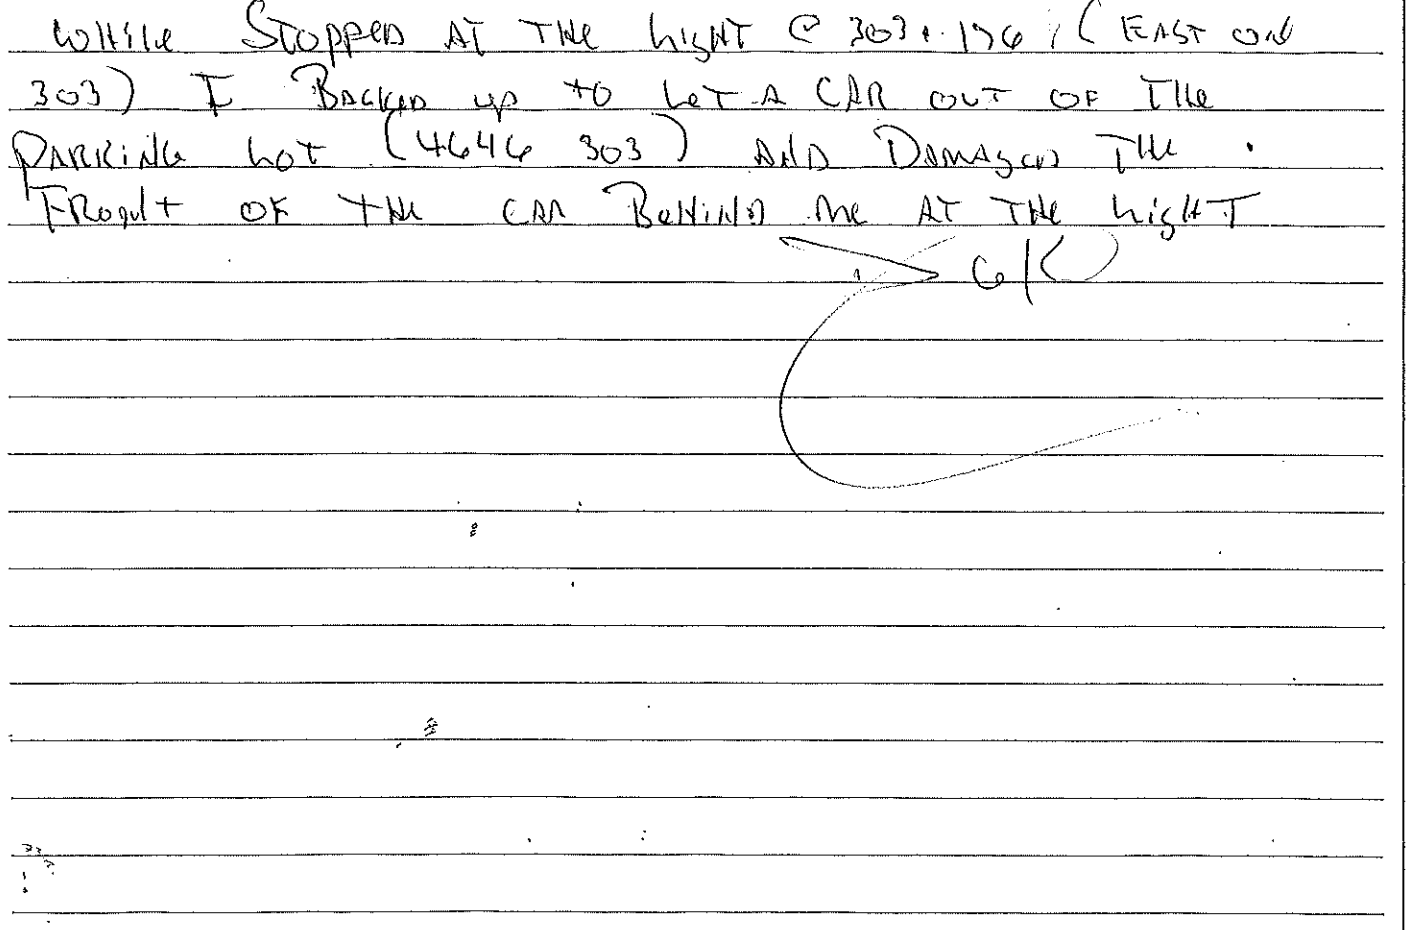 While Stopped AT THE Light @ 303 + 176 (EAST ON
303) I Backed up to Let A CAR OUT OF THE
PARKING Lot (4646 303) AND Damaged THE
FRONT OF THE CAR BEHIND me AT THE Light